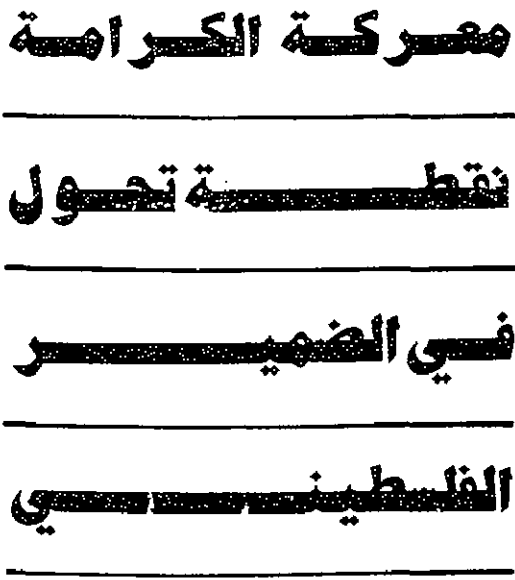 معركة الكرامة
نقطة تحول
في الضمير
الفلسطيني